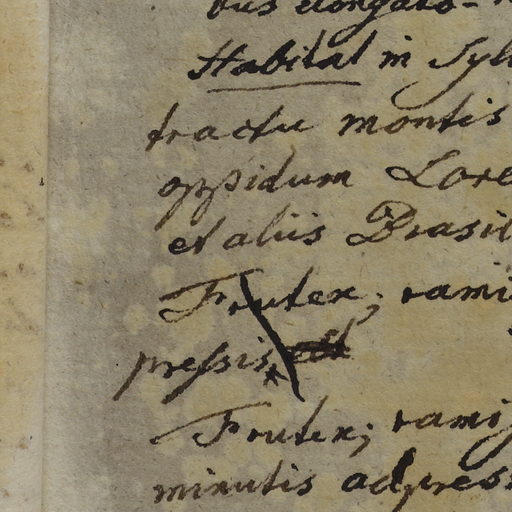 bus elongato-
Habitat in Syl
tractu montis
oppidum Lore
et aliis Brasil
Frutex; rami
pressis
Frutex; rami
minutis adpress